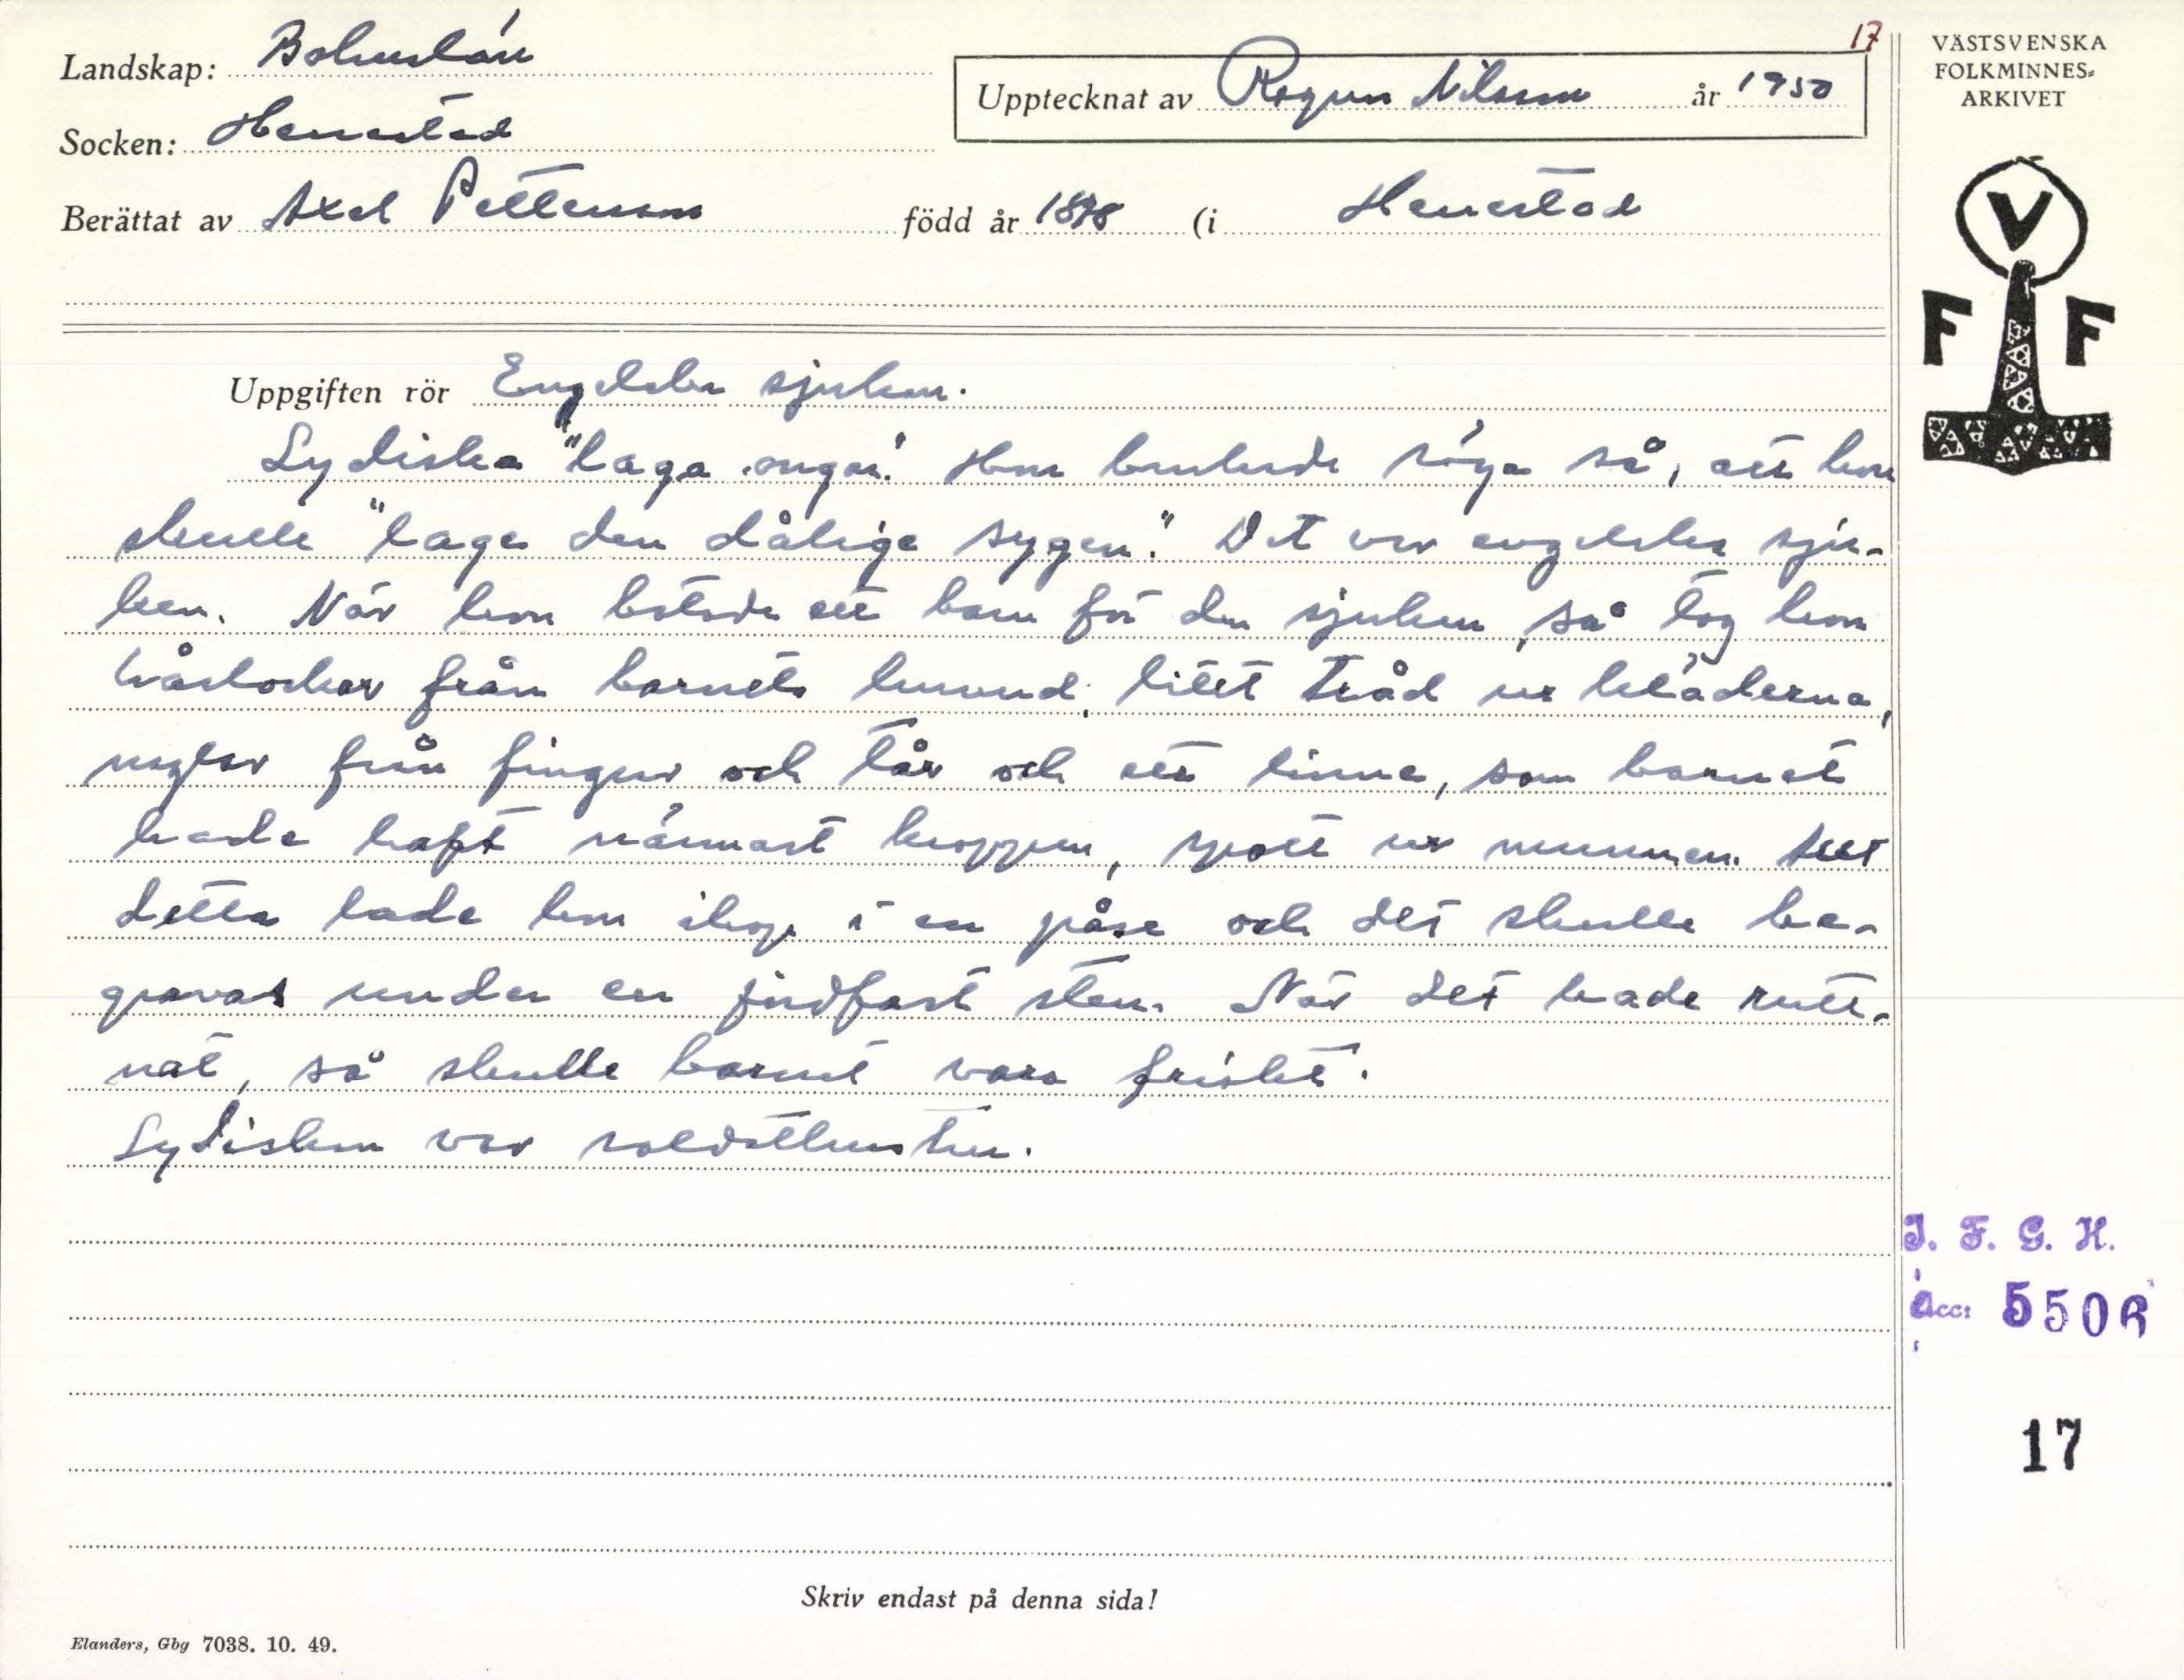 17
Landskap: Bohuslän
Upptecknat av Ragnar Nilsson år 1950
Socken: Henestad
Berättat av Axel Petterson född år 1878 (i Henestad
VÄSTSVENSKA
FOLKMINNES=
ARKIVET
V
F F
Uppgiften rör Engelska sjukan.
Lydiska "laga ongar". Hon brukade säga så, att hon
skulle "laga den dålige sygen." Det var engelska sju-
kan. När hon botade ett barn för den sjukan, så tog hon
hårlockar från barnets huvud, litet tråd ur kläderna,
naglar från fingrar och tår och ett linne, som barnet
hade haft närmast kroppen, spott ur munnen. Allt
detta lade hon ihop i en påse och det skulle be-
gravas under en jordfast sten. När det hade rutt-
nat, så skulle barnet vara friskt.
Lydiskan var soldathustru.
I. F. G. H.
Acc: 5506
17
Skriv endast på denna sida!
Elanders, Gbg 7038. 10. 49.